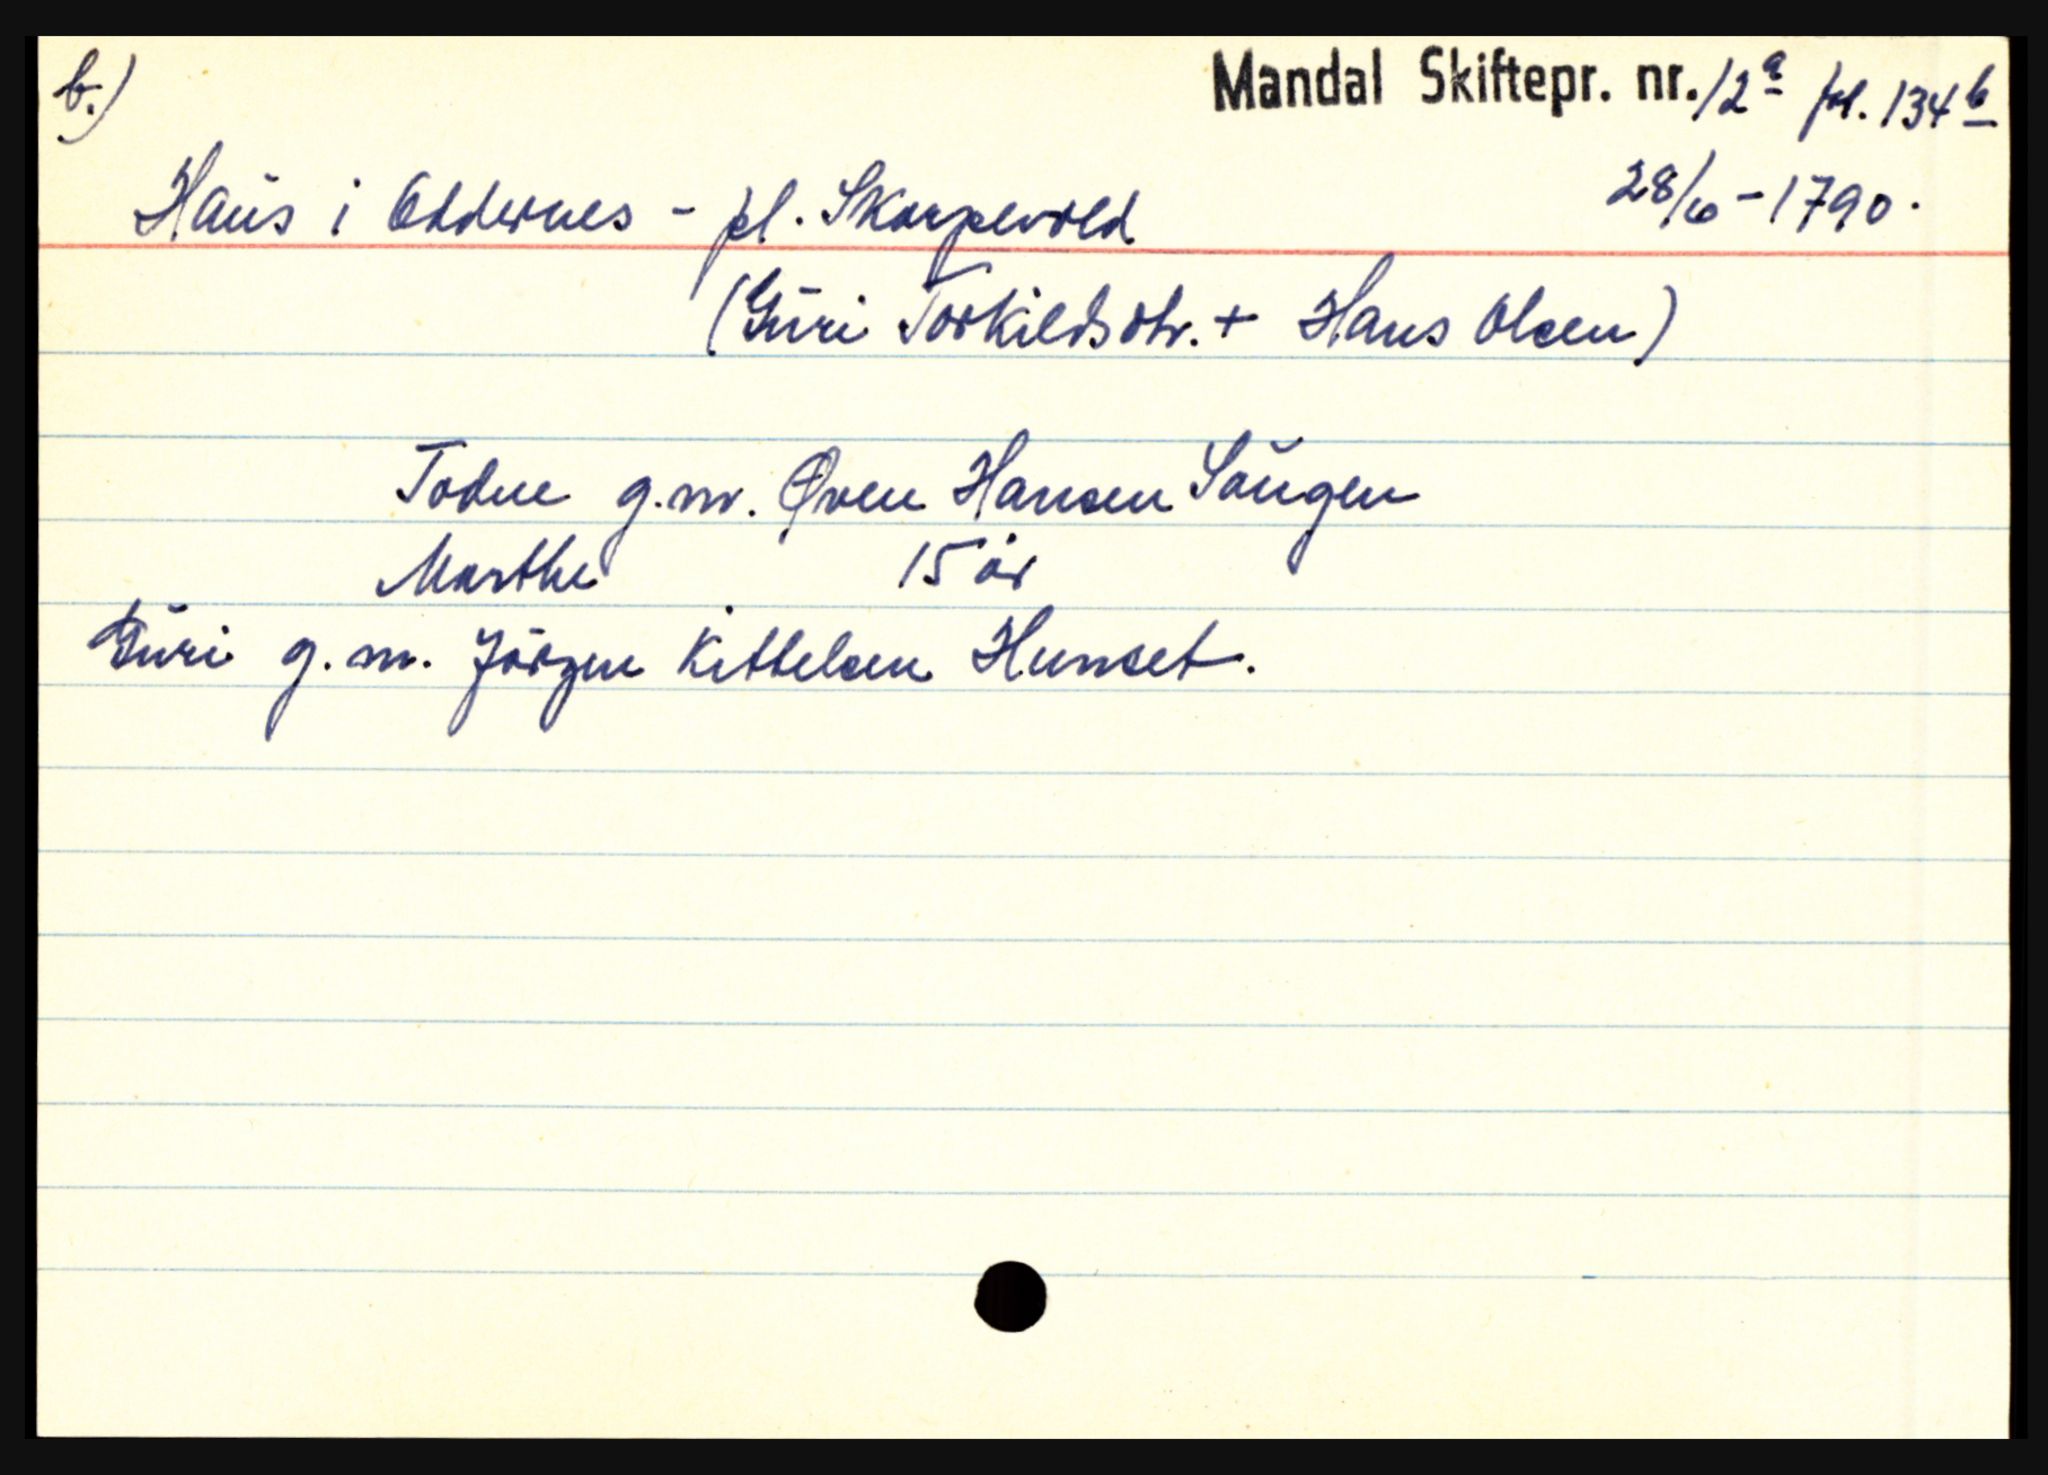 b.)
Mandal Skiftepr. nr. 12a fol. 134b
Haüs i Oddernes - pl. Skarpevold
28/6-1790.
(Gūri Torkildsdtr. + Hans Olsen)
Todne g.m. Øven Hansen Saügen
Marthe 15 år
Gūri g.m. Jörgen Kittelsen Hunset.